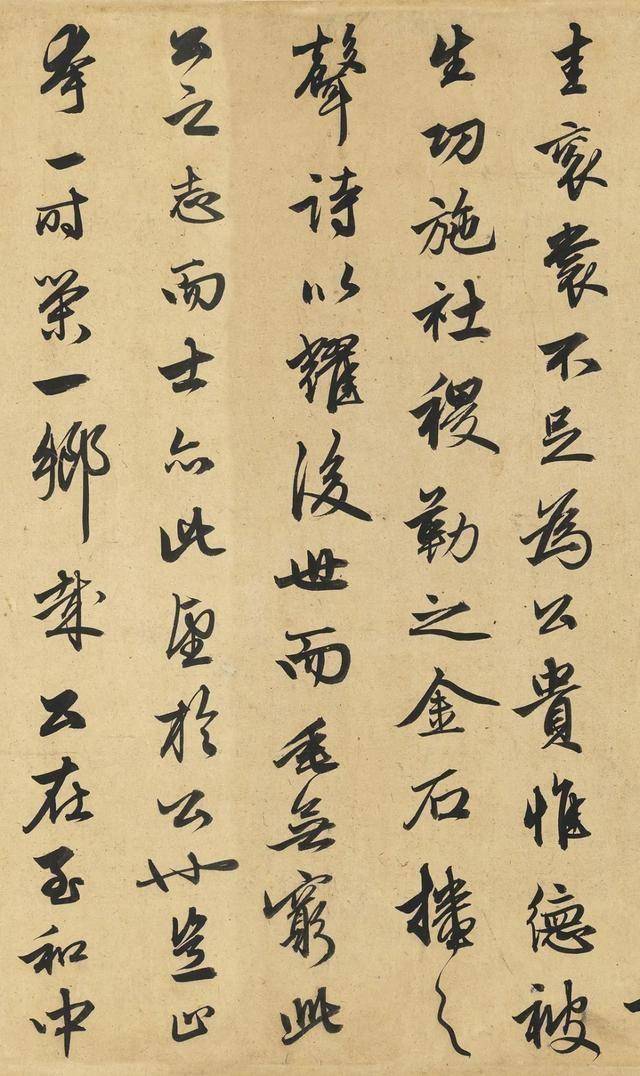 圭袞裳不足為公貴惟德被
生功施社稷勒之金石播之
聲詩以耀後世而垂無窮此
公之志而士亦此望於公也豈止
夸一时榮一鄉哉公在至和中